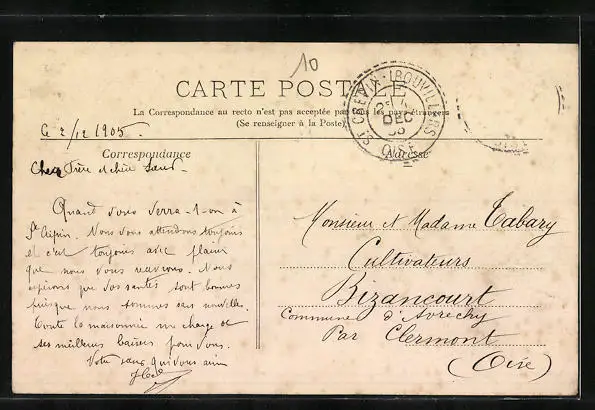 10
CARTE POSTALE
La Correspondance au recto n'est pas acceptée par tous les pays étrangers
(Se renseigner à la Poste)
ST CRÉPIN-IBOUVILLERS
DEC
05
OISE
Ce 2/12 1905.
Correspondance
Adresse
Cher frère et chère sœur.
Quand vous verra-t-on à
St Crépin. Nous vous attendons toujours
et c'est toujours avec plaisir
que nous vous reverrons. Nous
espérons que vos santés sont bonnes
puisque nous sommes sans nouvelles.
Toute la maisonnée me charge de
ses meilleurs baisers pour vous.
Votre sœur qui vous aime
Monsieur et Madame Tabary
Cultivateurs
Bizancourt
Commune d'Avrechy
Par Clermont
(Oise)